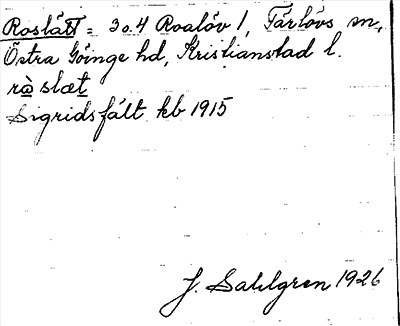 Roslätt = 30.4 Roalöv 1, Färlövs sn,
Östra Göinge hd, Kristianstad l.
rò̱ slæt
Sigridsfält kb 1915
J. Sahlgren 1926